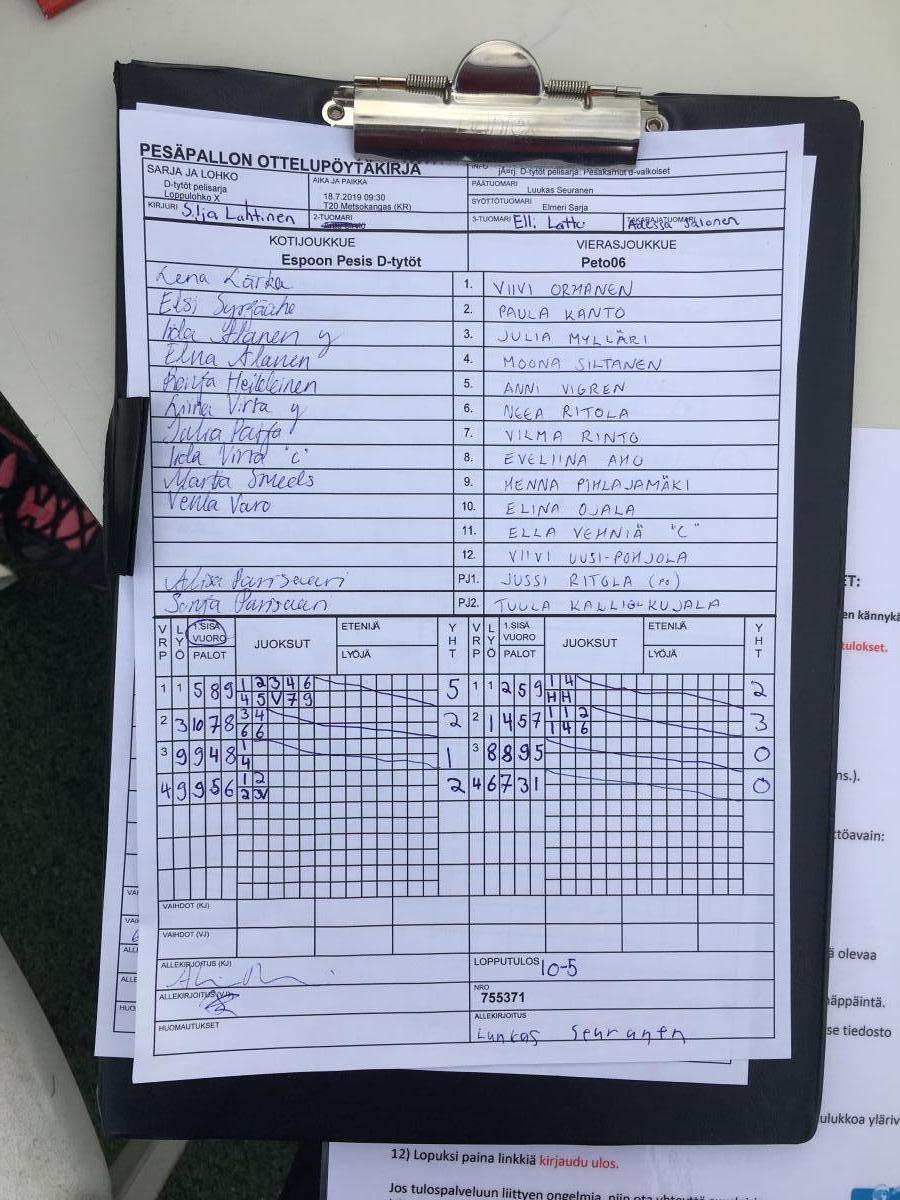 PESÄPALLON OTTELUPÖYTÄKIRJA
SARJA JA LOHKO
D-tytöt pelisarja
Loppulohko X
AIKA JA PAIKKA
18.7.2019 09:30
T20 Metsokangas (KR)
INFO
D-tytöt pelisarja: Pesäkarhut d-valkoiset
PÄÄTUOMARI
Luukas Seuranen
SYÖTTÖTUOMARI
Elmeri Sarja
KIRJURI Silja Lahtinen
2-TUOMARI
3-TUOMARI Elli Latti
TAKARAJATUOMARI Salonen
KOTIJOUKKUE
Espoon Pesis D-tytöt
VIERASJOUKKUE
Peto06
Lena Lärka 1. VIIVI ORMANEN
Elsi 2. PAULA KANTO
Iida Alanen y 3. JULIA MYLLÄRI
Elna Alanen 4. MOONA SILTANEN
Heikkinen 5. ANNI VIGREN
Virta y 6. NEEA RITOLA
Julia 7. VILMA RINTO
Iida Virta "C" 8. EVELIINA AHO
Marta Smeds 9. HENNA PIHLAJAMÄKI
Venla Varo 10. ELINA OJALA
11. ELLA VEHNIÄ "C"
12. VIIVI UUSI-POHJOLA
Alisa Parssaari PJ1. JUSSI RITOLA (PJ)
Sonja PJ2. TUULA KALLIO-KUJALA
VRP LYÖ 1.SISÄ VUORO PALOT JUOKSUT ETENIJÄ LYÖJÄ YHT VRP LYÖ 1.SISÄ VUORO PALOT JUOKSUT ETENIJÄ LYÖJÄ YHT
1 1 5 8 9 1 2 3 4 6 5 1 1 2 5 9 1 4 2
4 5 V 7 9 H H
2 3 10 7 8 3 4 2 2 1 4 5 7 1 1 2 3
6 6 1 4 6
3 9 9 4 8 1 1 3 8 8 9 5 0
4
4 9 9 5 6 1 2 2 4 6 7 3 1 0
2 3V
VAIHDOT (KJ)
VAIHDOT (VJ)
ALLEKIRJOITUS (KJ)
LOPPUTULOS 10-5
ALLEKIRJOITUS (VJ)
NRO
755371
HUOMAUTUKSET
ALLEKIRJOITUS
Luukas Seuranen
ET:
en kännykä
tulokset.
ns.).
ttöavain:
ä olevaa
näppäintä.
se tiedosto
ulukkoa yläriv
12) Lopuksi paina linkkiä kirjaudu ulos.
Jos tulospalveluun liittyen ongelmia, niin ota yhteyttä